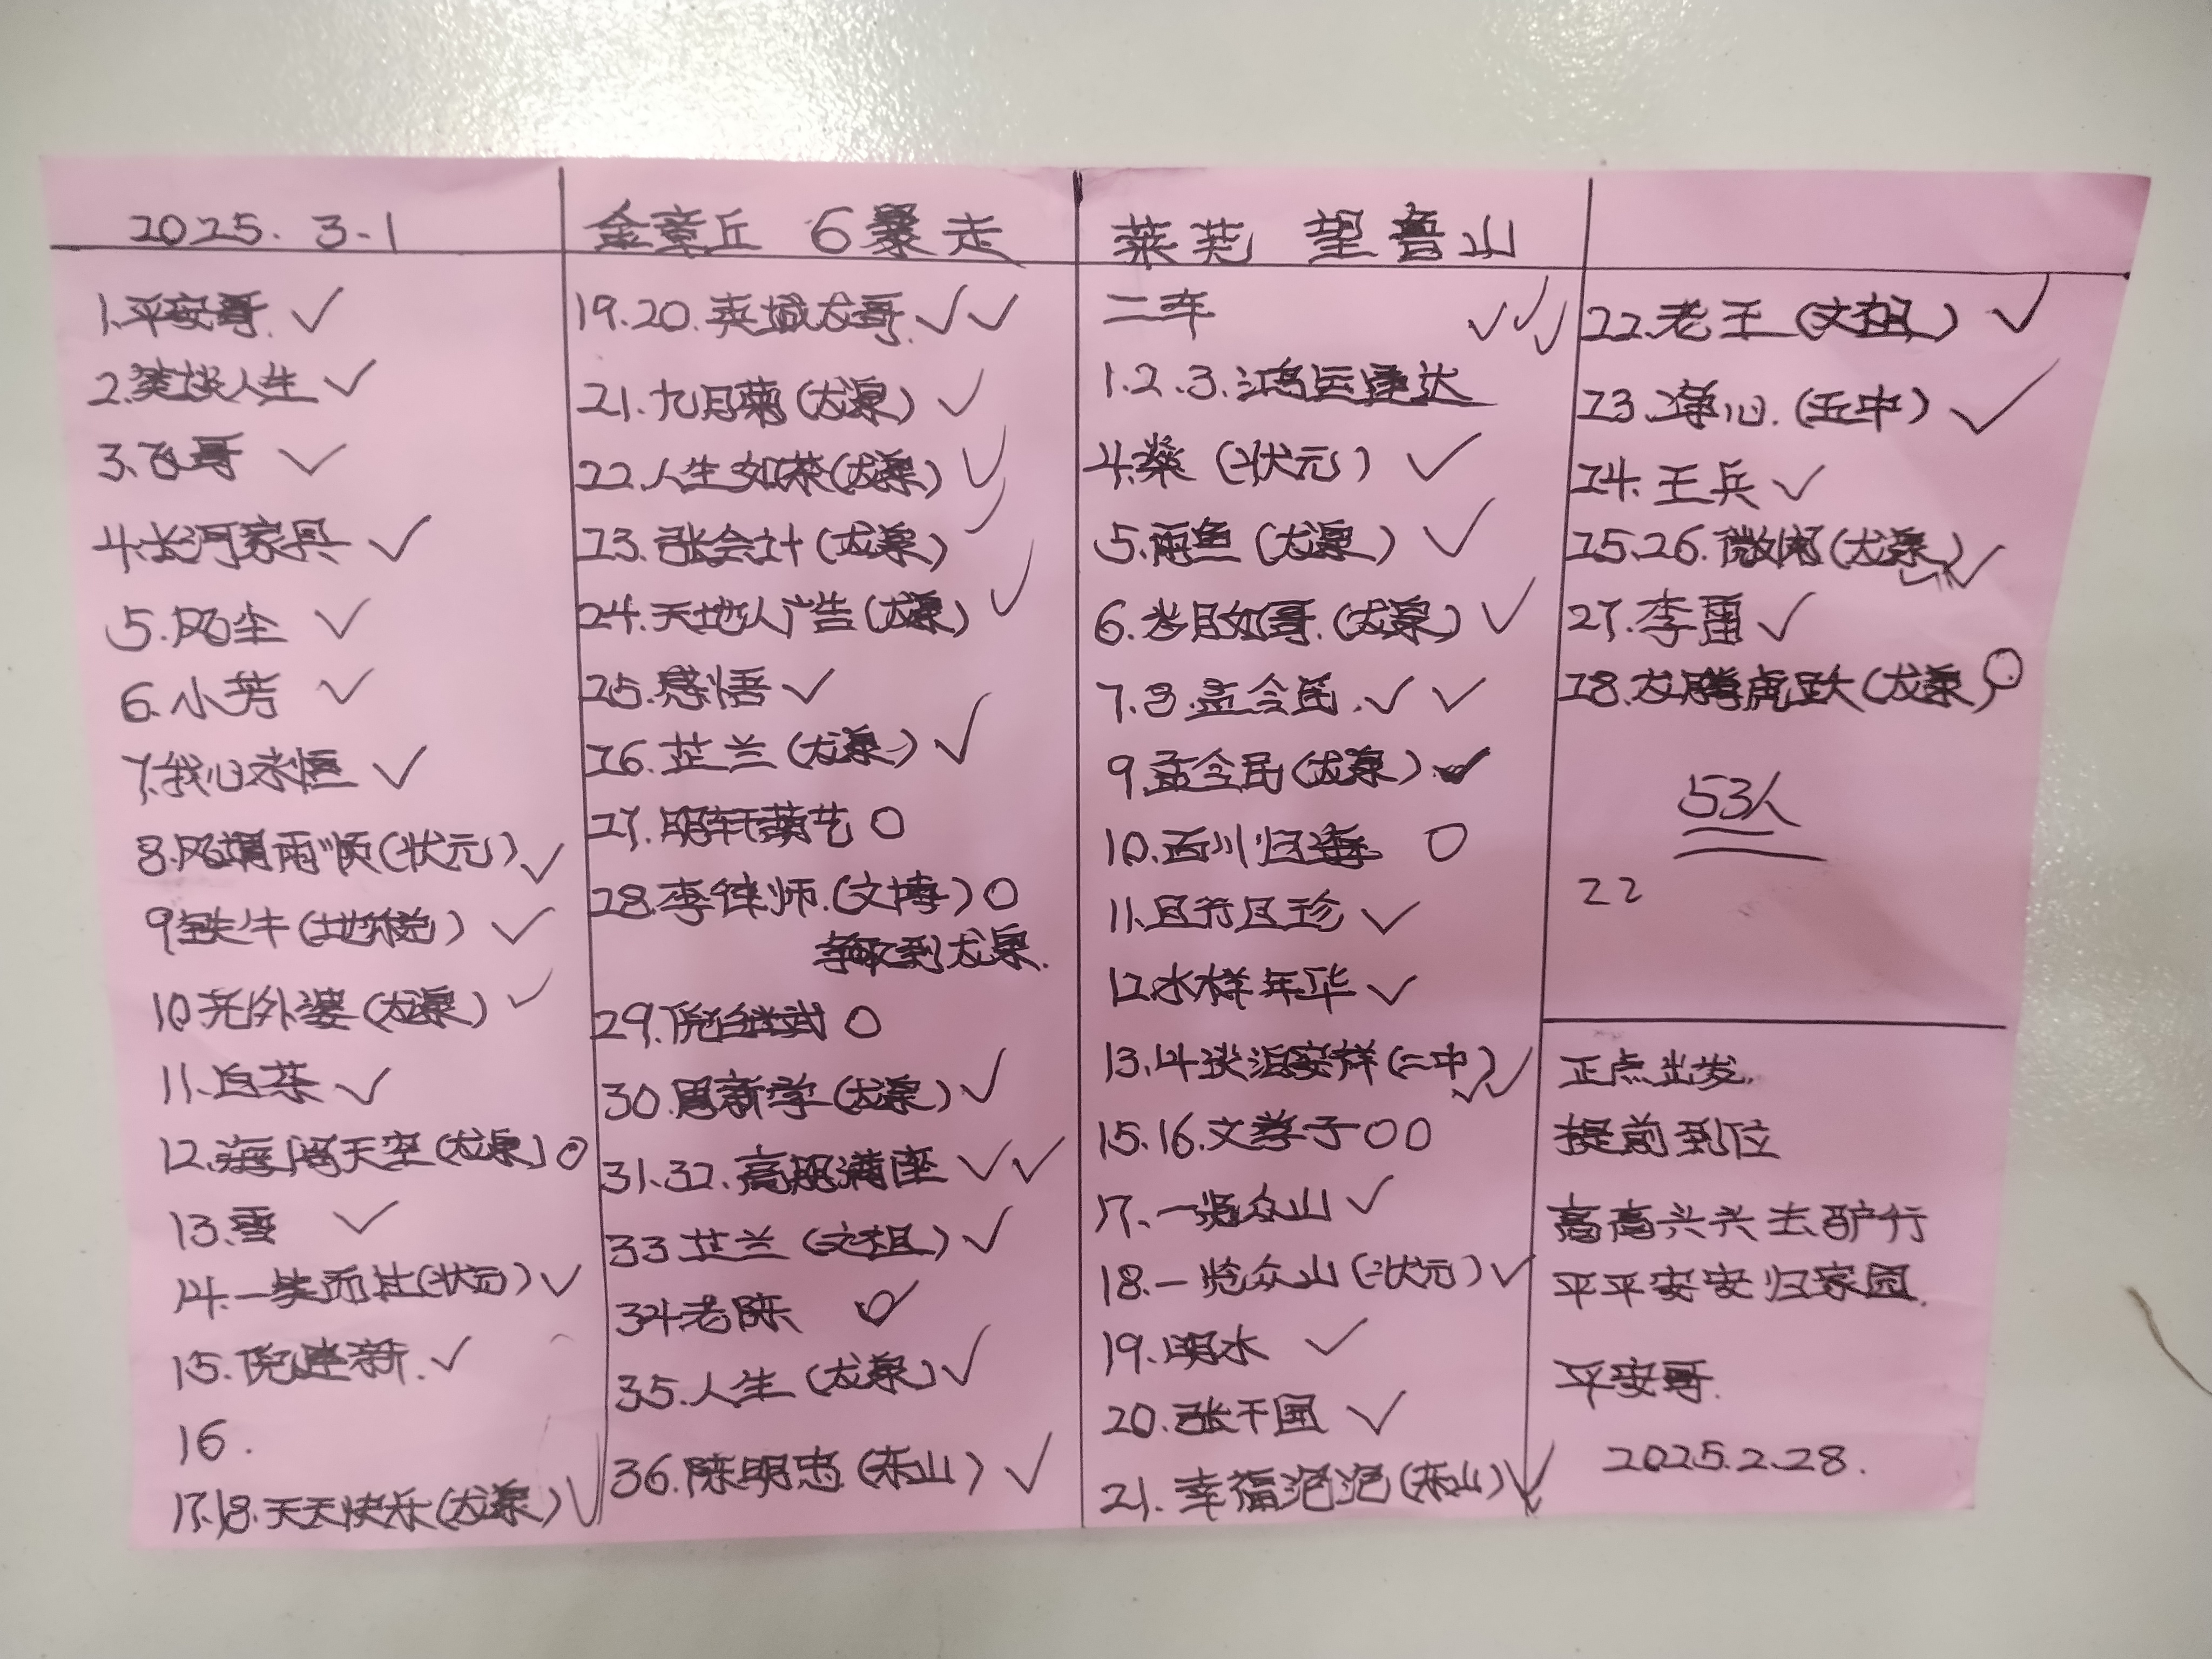 2025. 3.1
1.平安哥 ✓
2.笑谈人生 ✓
3.飞哥 ✓
4.长河家具 ✓
5.风尘 ✓
6.小芳 ✓
7.我心永恒 ✓
8.风调雨顺(状元) ✓
9铁牛(地税) ✓
10.无外婆(龙泉) ✓
11.白茶 ✓
12.海阔天空(龙泉) ○
13.雪 ✓
14.一笑而过(状元) ✓
15.倪建新. ✓
16.
17.18.天天快乐(龙泉) ✓
金章丘 6暴走
19.20.英城龙哥. ✓✓
21.九月菊(龙泉) ✓
22.人生如茶(龙泉) ✓
23.张会计(龙泉) ✓
24.天地人广告(龙泉) ✓
25.感悟 ✓
26.芷兰(龙泉) ✓
27.明轩 艺 ○
28.李律师.(文博) ○
争取到龙泉.
29.倪继武 ○
30.周新学(龙泉) ✓
31.32.高朋满座 ✓✓
33芷兰(文祖) ✓
34老陈 ✓
35.人生(龙泉) ✓
36.陈明忠(东山) ✓
莱芜 望鲁山
二车 ✓✓✓
1.2.3.鸿运通达
4.燊(状元) ✓
5.雨鱼(龙泉) ✓
6.岁月如哥.(龙泉) ✓
7.8.孟令民. ✓✓
9.孟令民(龙泉) ✓
10.西川归 ○
11.且行且珍 ✓
12.水样年华 ✓
13.14淡泊安祥(二中) ✓✓
15.16.文学子○○
17.一览众山 ✓
18.一览众山(状元) ✓
19.明水 ✓
20.张干国 ✓
21.幸福泡泡(东山) ✓
22.老王(文祖) ✓
23.净心.(五中) ✓
24.王兵 ✓
25.26.微闲(龙泉) ✓✓
27.李雷 ✓
28.龙腾虎跃(龙泉) ○
53人
22
正点出发.
提前到位
高高兴兴去驴行
平平安安归家园.
平安哥.
2025.2.28.